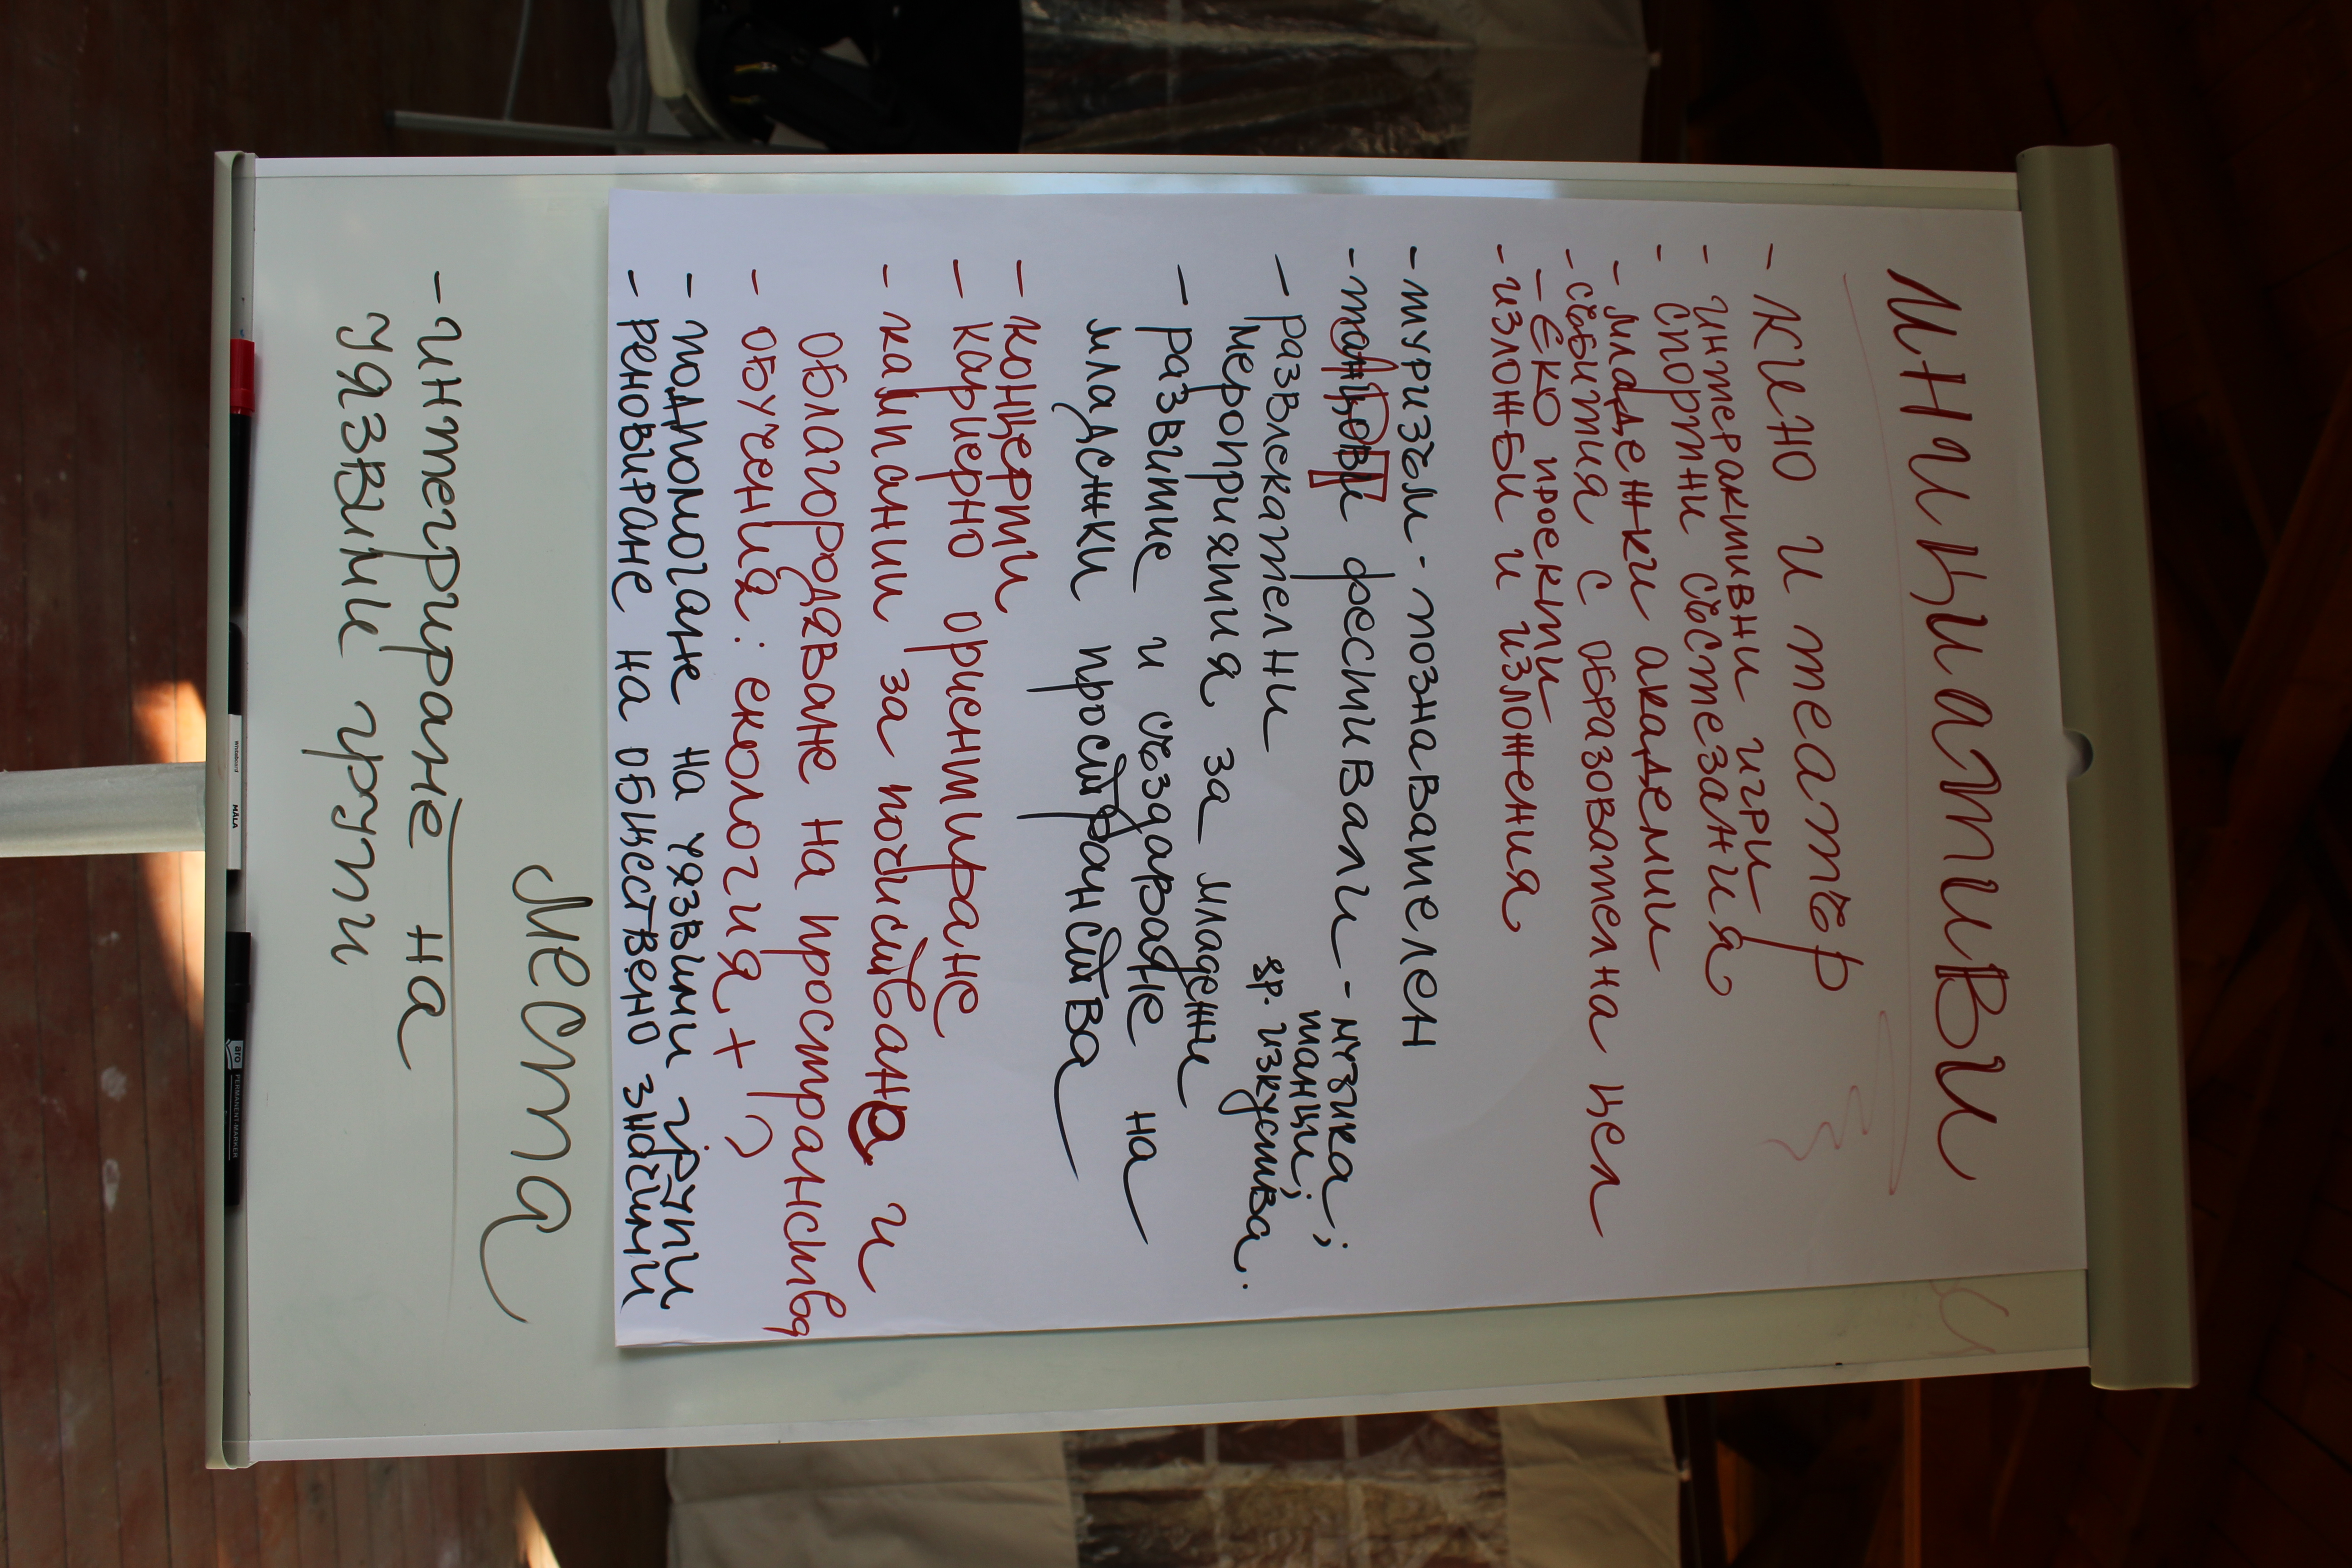 инициативи
- кино и театър
- интерактивни игри
- спортни състезания
- младежки академии
- събития с образователна цел
- Еко проекти
- изложби и изложения
- туризъм - познавателен
- танцови фестивали - музика;
танци;
др. изкуства..
- развлекателни
мероприятия за младежи
- развитие и създаване на
младежки пространства
- концерти
- кариерно ориентиране
- кампании за почистване и
облагородяване на пространства
- обучения: екология, + ?
- подпомагане на уязвими групи
- реновиране на обществено значими
места
- интегриране на
уязвими групи
whiteboard
MÅLA
aro PERMANENT MARKER